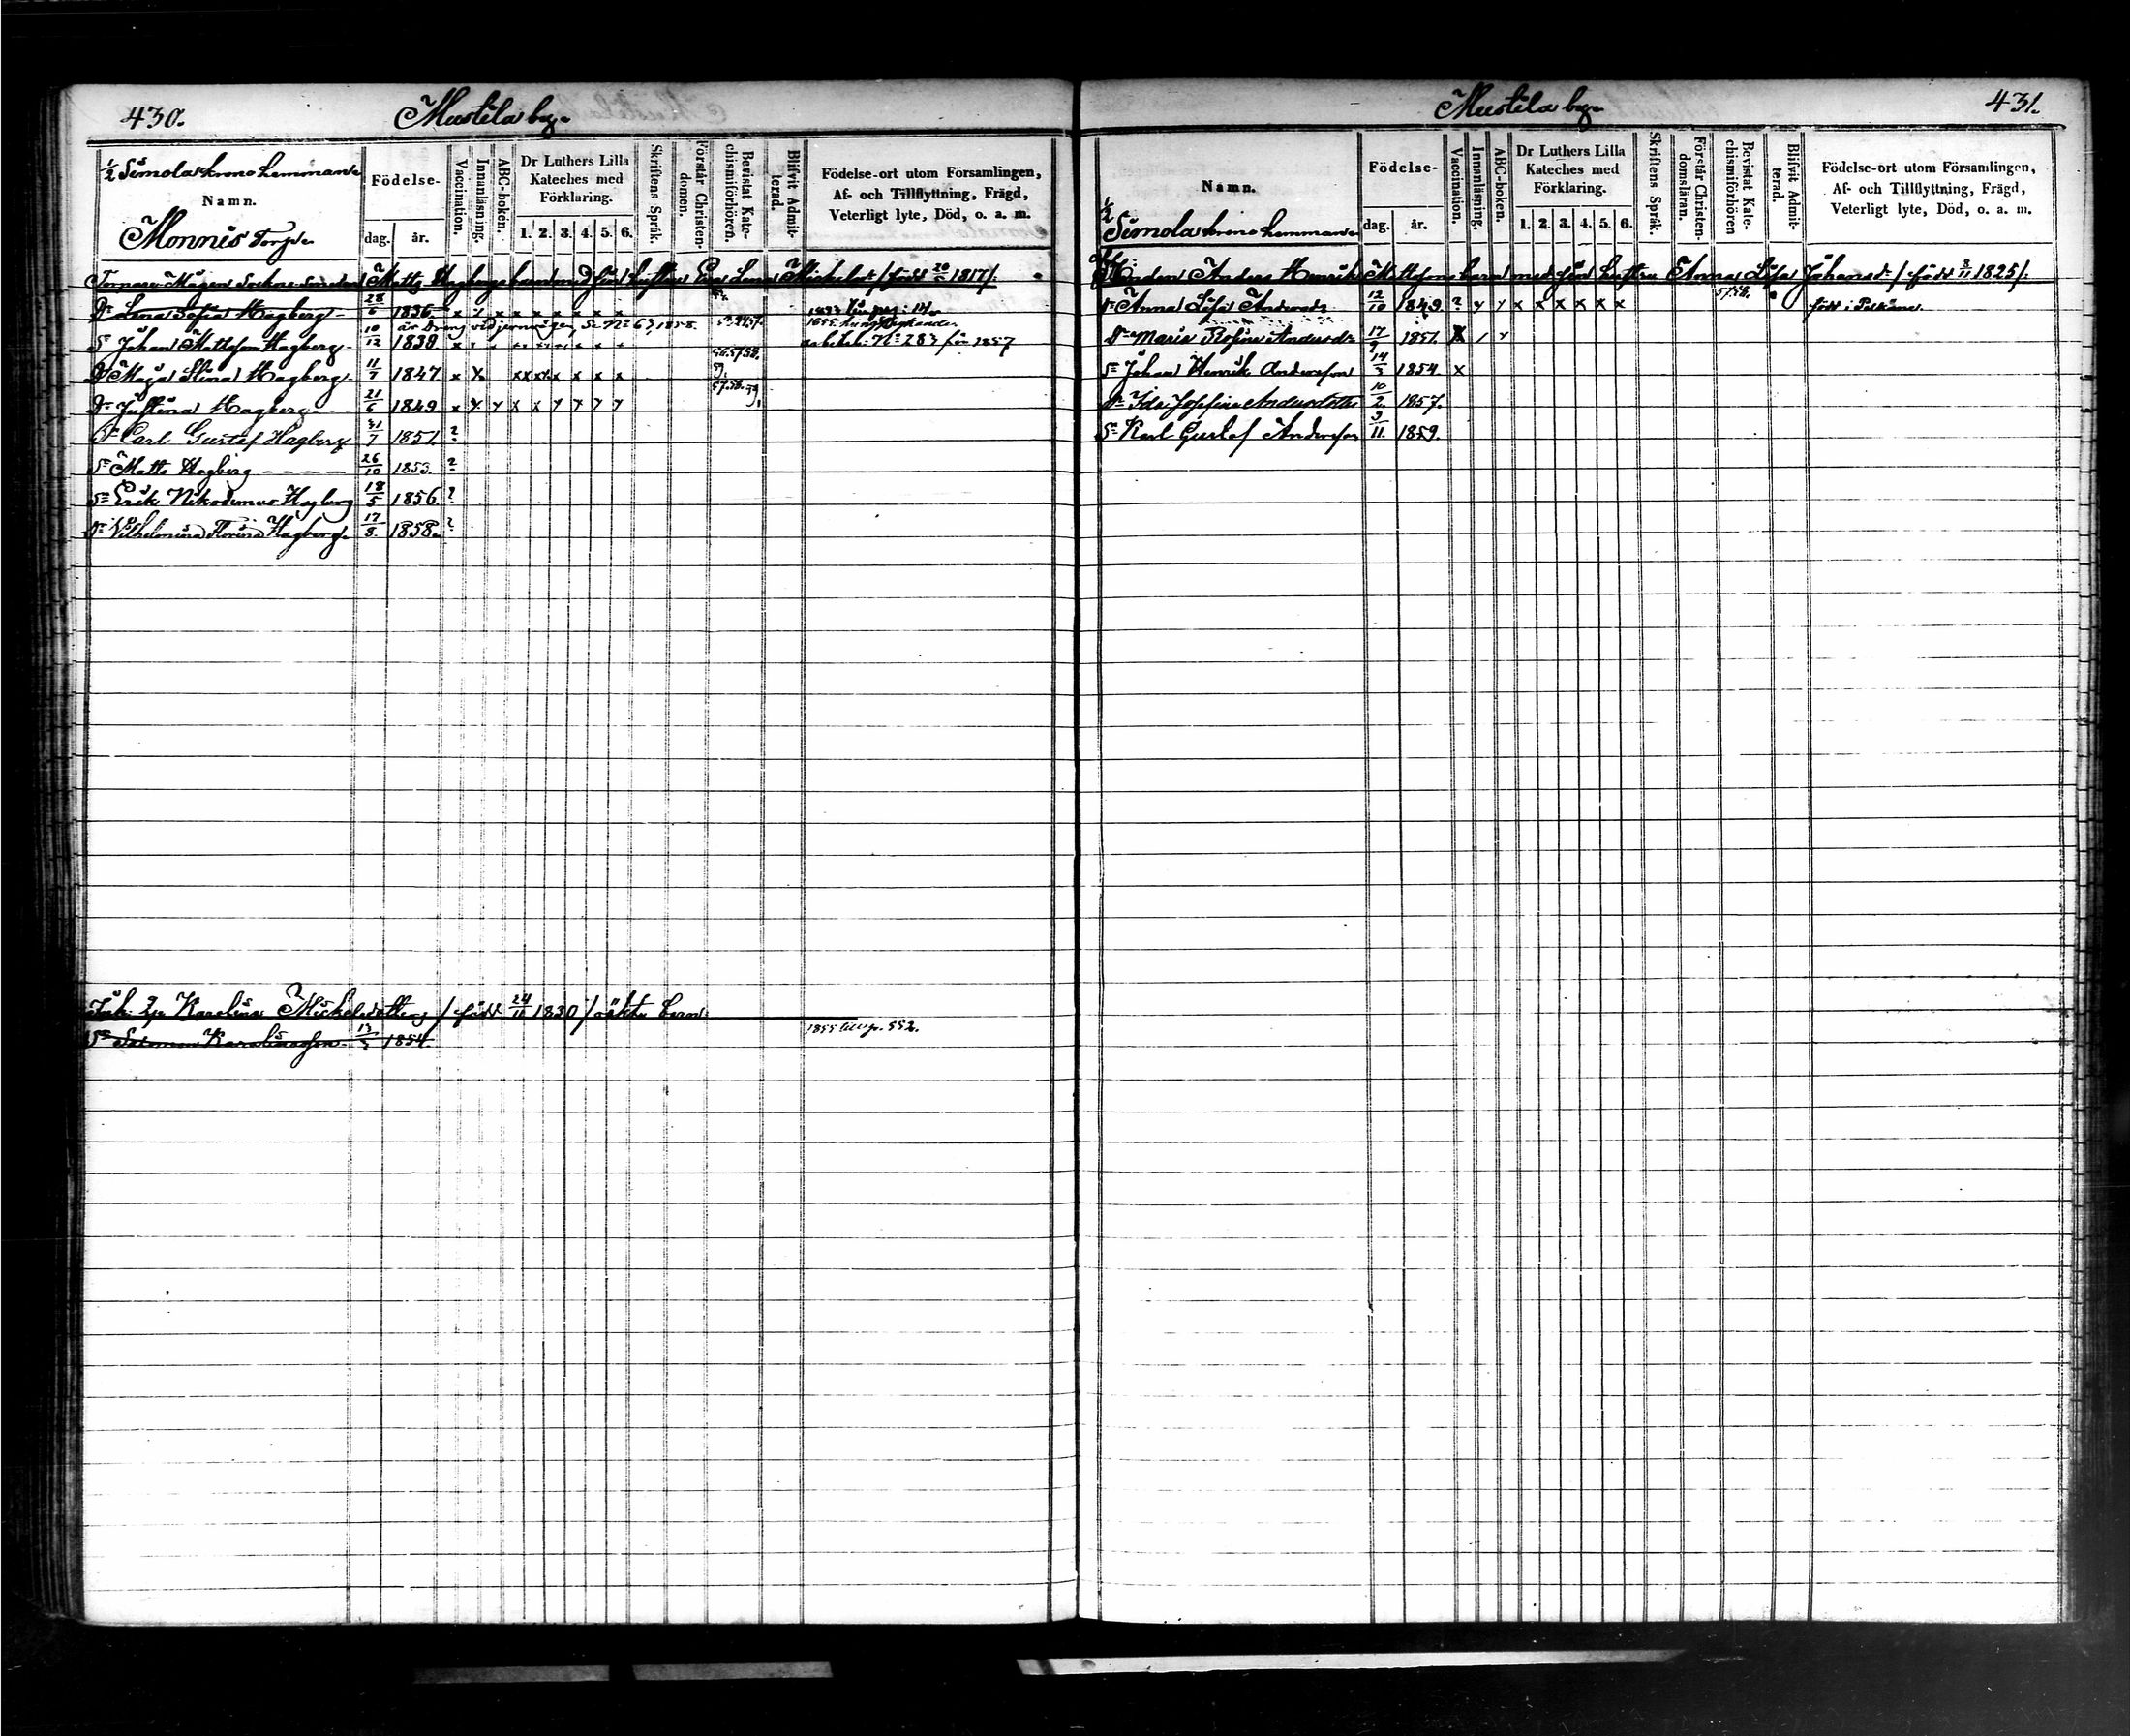 430.
Mustila by.
1/2 Simola krono hemman
Namn.
Monnis Torp
Födelse-
dag. år.
Vaccination.
Innanläsning.
ABC-boken.
Dr Luthers Lilla Kateches med Förklaring.
1. 2. 3. 4. 5. 6.
Skriftens Språk.
Förstår Christendomen.
Bevistat Katechismiförhören.
Blifvit Admitterad.
Födelse-ort utom Församlingen,
Af- och Tillflyttning, Frägd,
Veterligt lyte, Död, o. a. m.
Matts Hagbergs barn med sin hustru Eva Lena Michelsdr /född 1817/.
Dr Lena Sofia Hagberg 28/6 1836 x x x x x x x x
är dräng vid jernvägen 1858.
Sn Johan Mattsson Hagberg 10/12 1838 arbetsb. No 283 för 1857
Dr Maja Stina Hagberg 11/7 1847 x x x x x x x x 56.57.58. 59.
Dr Justina Hagberg 21/6 1849. x y y x x y y y y 57.58. 59.
Sn Carl Gustaf Hagberg 31/7 1851 ?
Sn Matts Hagberg 26/10 1853. ?
Sn Erik Nikodemus Hagberg 18/5 1856. ?
Dr Vilhelmina Florina Hagberg 17/8. 1858. ?
Karolina Michelsdotters /född 24/11 1830/ oäkta barn
Sn Salomon Karolinasson 1854. 1855 till p. 552.
431.
Mustila by.
Namn.
1/2
Simola krono hemman
Födelse-
dag. år.
Vaccination.
Innanläsning.
ABC-boken.
Dr Luthers Lilla Kateches med Förklaring.
1. 2. 3. 4. 5. 6.
Skriftens Språk.
Förstår Christendomsläran.
Bevistat Katechismiförhören
Blifvit Admitterad.
Födelse-ort utom Församlingen,
Af- och Tillflyttning, Frägd,
Veterligt lyte, Död, o. a. m.
Anders Henrik Mattssons barn med sin hustru Anna Lisa Johansdr /född 8/11 1825/.
Dr Anna Lisa Andersdr 12/10 1849. ? y y x x x x x x 57.58. född i Pelkäne.
Dr Maria Rosina Andersdr 17/9 1851. x / y
Sn Johan Henrik Andersson 14/3 1854. x
Dr Ida Josefina Andersdotter 10/2. 1857.
Sn Karl Gustaf Andersson 3/11. 1859.